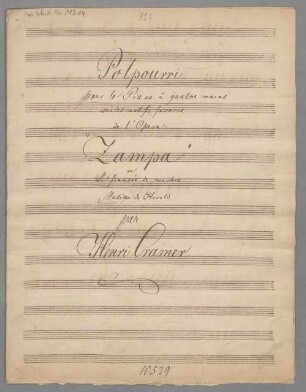 Potpourri
pour le Piano à quatre mains
sur des motifs favoris
de l'Opera
"Zampa"
ou
la fiancée de marbre
Musique de Herold
par
Henri Cramer.
10539